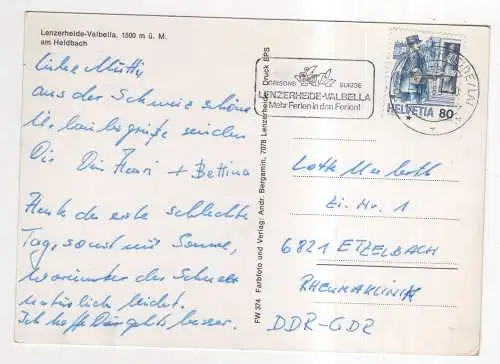 Lenzerheide-Valbella, 1500 m ü. M.
am Heidbach
Liebe Mutti
aus der Schweiz schöne
Urlaubsgrüße senden
Dir Dein Henri + Bettina
Heute der erste schlechte
Tag, sonst nur Sonne,
worunter der Schnee
natürlich leidet.
Ich hoffe Dir gehts besser.
FW 374 Farbfoto und Verlag: Andr. Bergamin, 7078 Lenzerheide Druck EPS
GRISONS SUISSE
LENZERHEIDE-VALBELLA
Mehr Ferien in den Ferien!
HELVETIA 80
Lotte
Zi. Nr. 1
6821 ETZELBACH
RHEUMAKLINIK
DDR-GDR